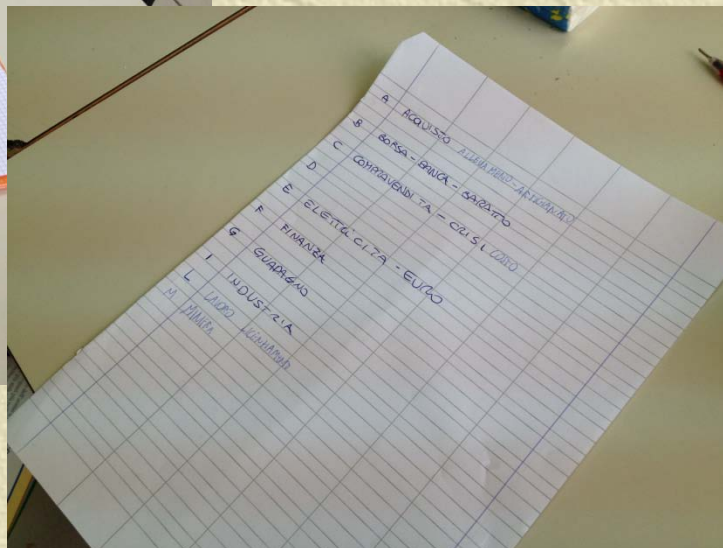 A ACQUISTO ALLEVAMENTO-ARTIGIANATO
B BORSA - BANCA - BARATTO
C COMPRAVENDITA - CRISI
D
E ELETTRICITÀ - EURO
F FINANZA
G GUADAGNO
I INDUSTRIA
L LAVORO
M MINIERA